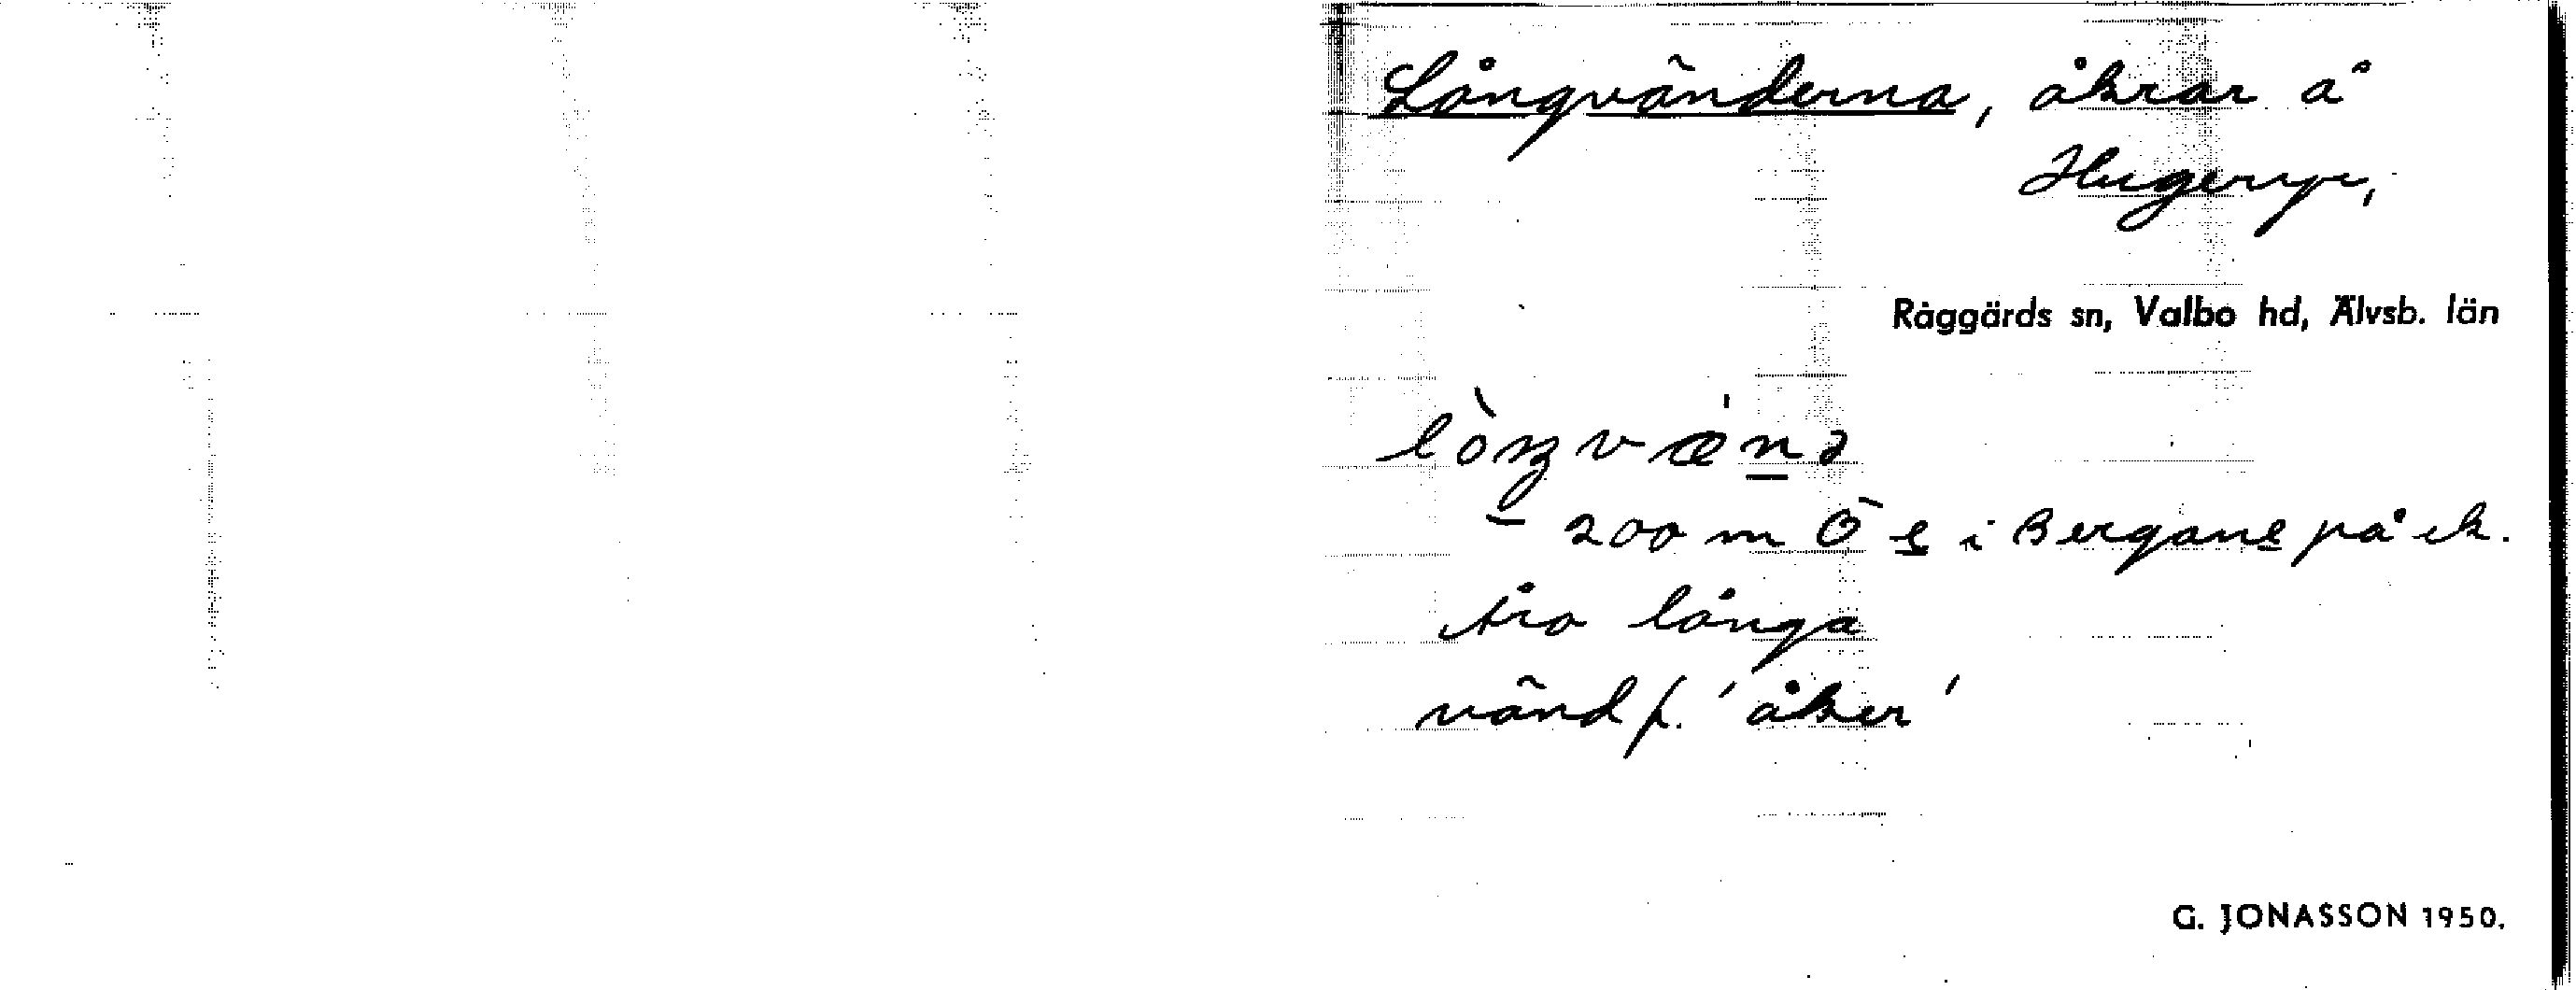 Långvänderna, åkrar å
Hugeryr,
Råggärds sn, Valbo hd, Älvsb. län
lòŋvæ̀nə
- 200 m Ö e i Bergane på ek.
Äro långa
vänd f. 'åker'
G. JONASSON 1950.